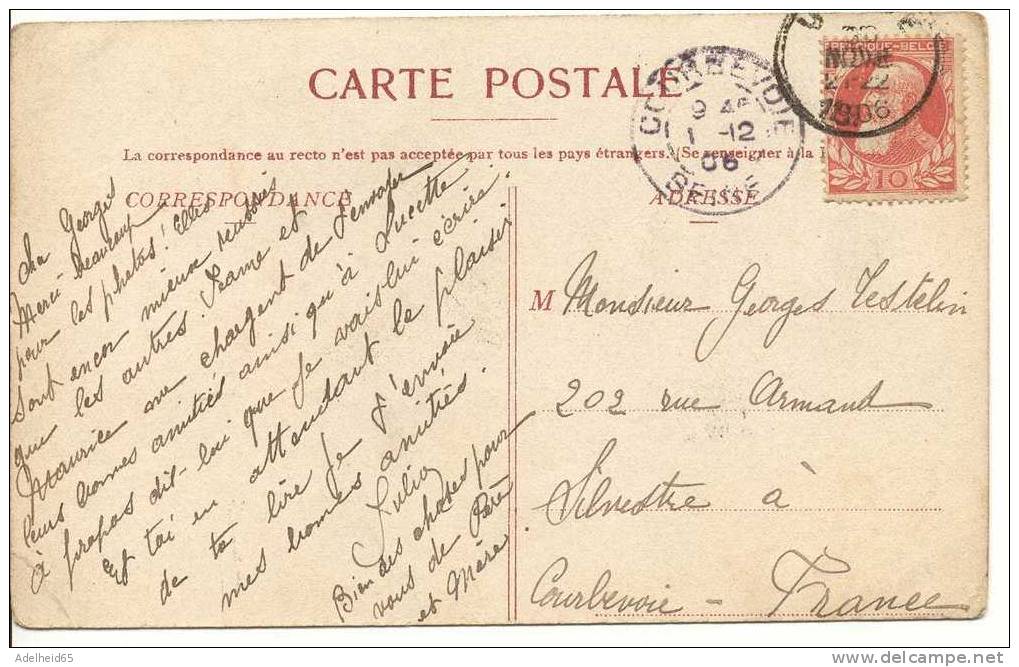 CARTE POSTALE
La correspondance au recto n'est pas acceptée par tous les pays étrangers. (Se renseigner à la
CORRESPONDANCE
ADRESSE
Cher Georges
Merci beaucoup
pour les photos! Elles
sont encor mieux réussies
que les autres. Jeanne et
Maurice me chargent de t'envoyer
leurs bonnes amitiés ainsi qu'à Lucette
à propos dit-lui que je vais lui écrire.
Et toi en attendant le plaisir
de te lire je t'envoie
mes bonnes amitiés.
Julia
Bien des choses pour
vous de Père
et Mère
M Monsieur Georges Testelin
202 rue Armand
Silvestre à
Courbevoie - France
COURBEVOIE
1 -12
06
SEINE
NOVE
1906
10
Adelheid65
www.delcampe.net